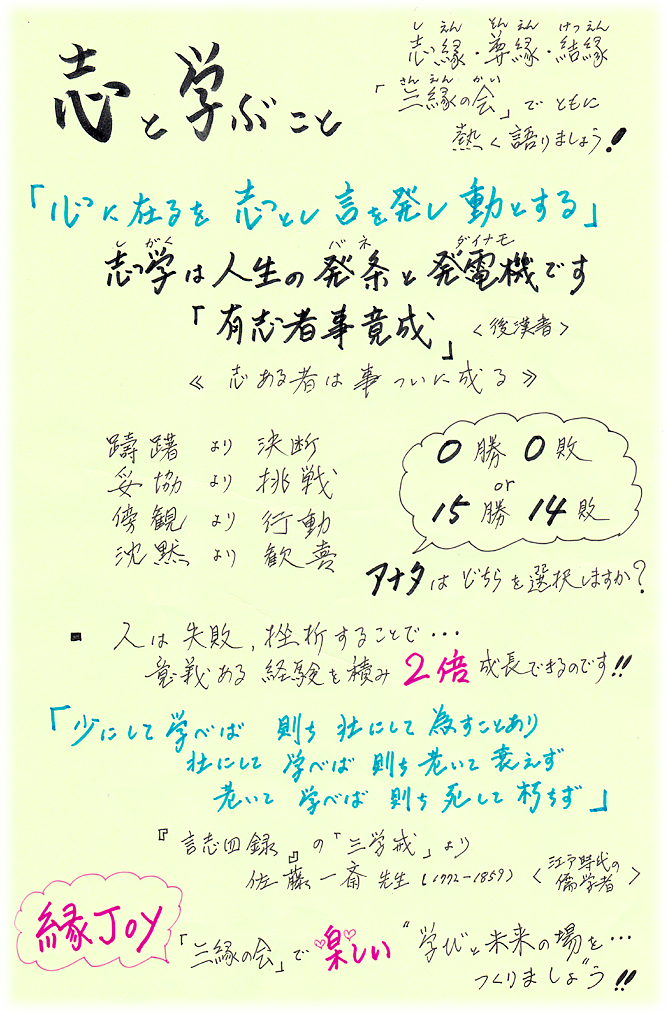 志と学ぶこと
しえん そんえん けつえん
志縁・尊縁・結縁
さんえん かい
「三縁の会」でともに
熱く語りましょう!
「心に在るを 志とし 言を発し 動とする」
しがく バネ ダイナモ
志学は人生の発条と発電機です
「有志者事竟成」<後漢書>
≪志ある者は事ついに成る≫
躊躇より決断
妥協より挑戦
傍観より行動
沈黙より歓喜
0勝0敗
or
15勝14敗
アナタはどちらを選択しますか?
■ 人は失敗、挫折することで…
意義ある経験を積み2倍成長できるのです!!
「少にして学べば 則ち壮にして為すことあり
壮にして学べば 則ち老いて衰えず
老いて学べば 則ち死して朽ちず」
『言志四録』の「三学戒」より
佐藤一斎先生(1772-1859)<江戸時代の
儒学者>
縁JOY
「三縁の会」で楽しい"学びと未来の場を…
つくりましょ"う!!